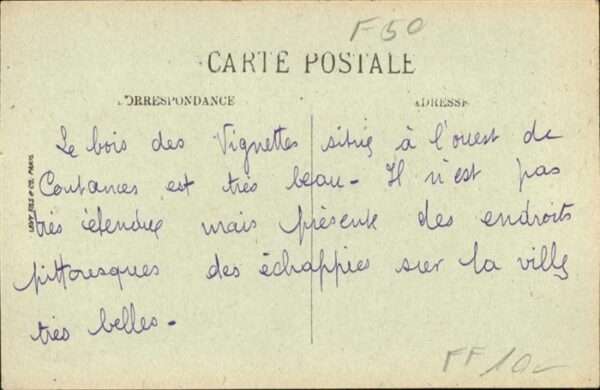 F50
CARTE POSTALE
CORRESPONDANCE
ADRESSE
Le bois des Vignettes situé à l'ouest de
Coutances est très beau - Il n'est pas
très étendue mais présente des endroits
pittoresques des échappées sur la ville
très belles -
LEVY FILS & CO. PARIS
FF10-